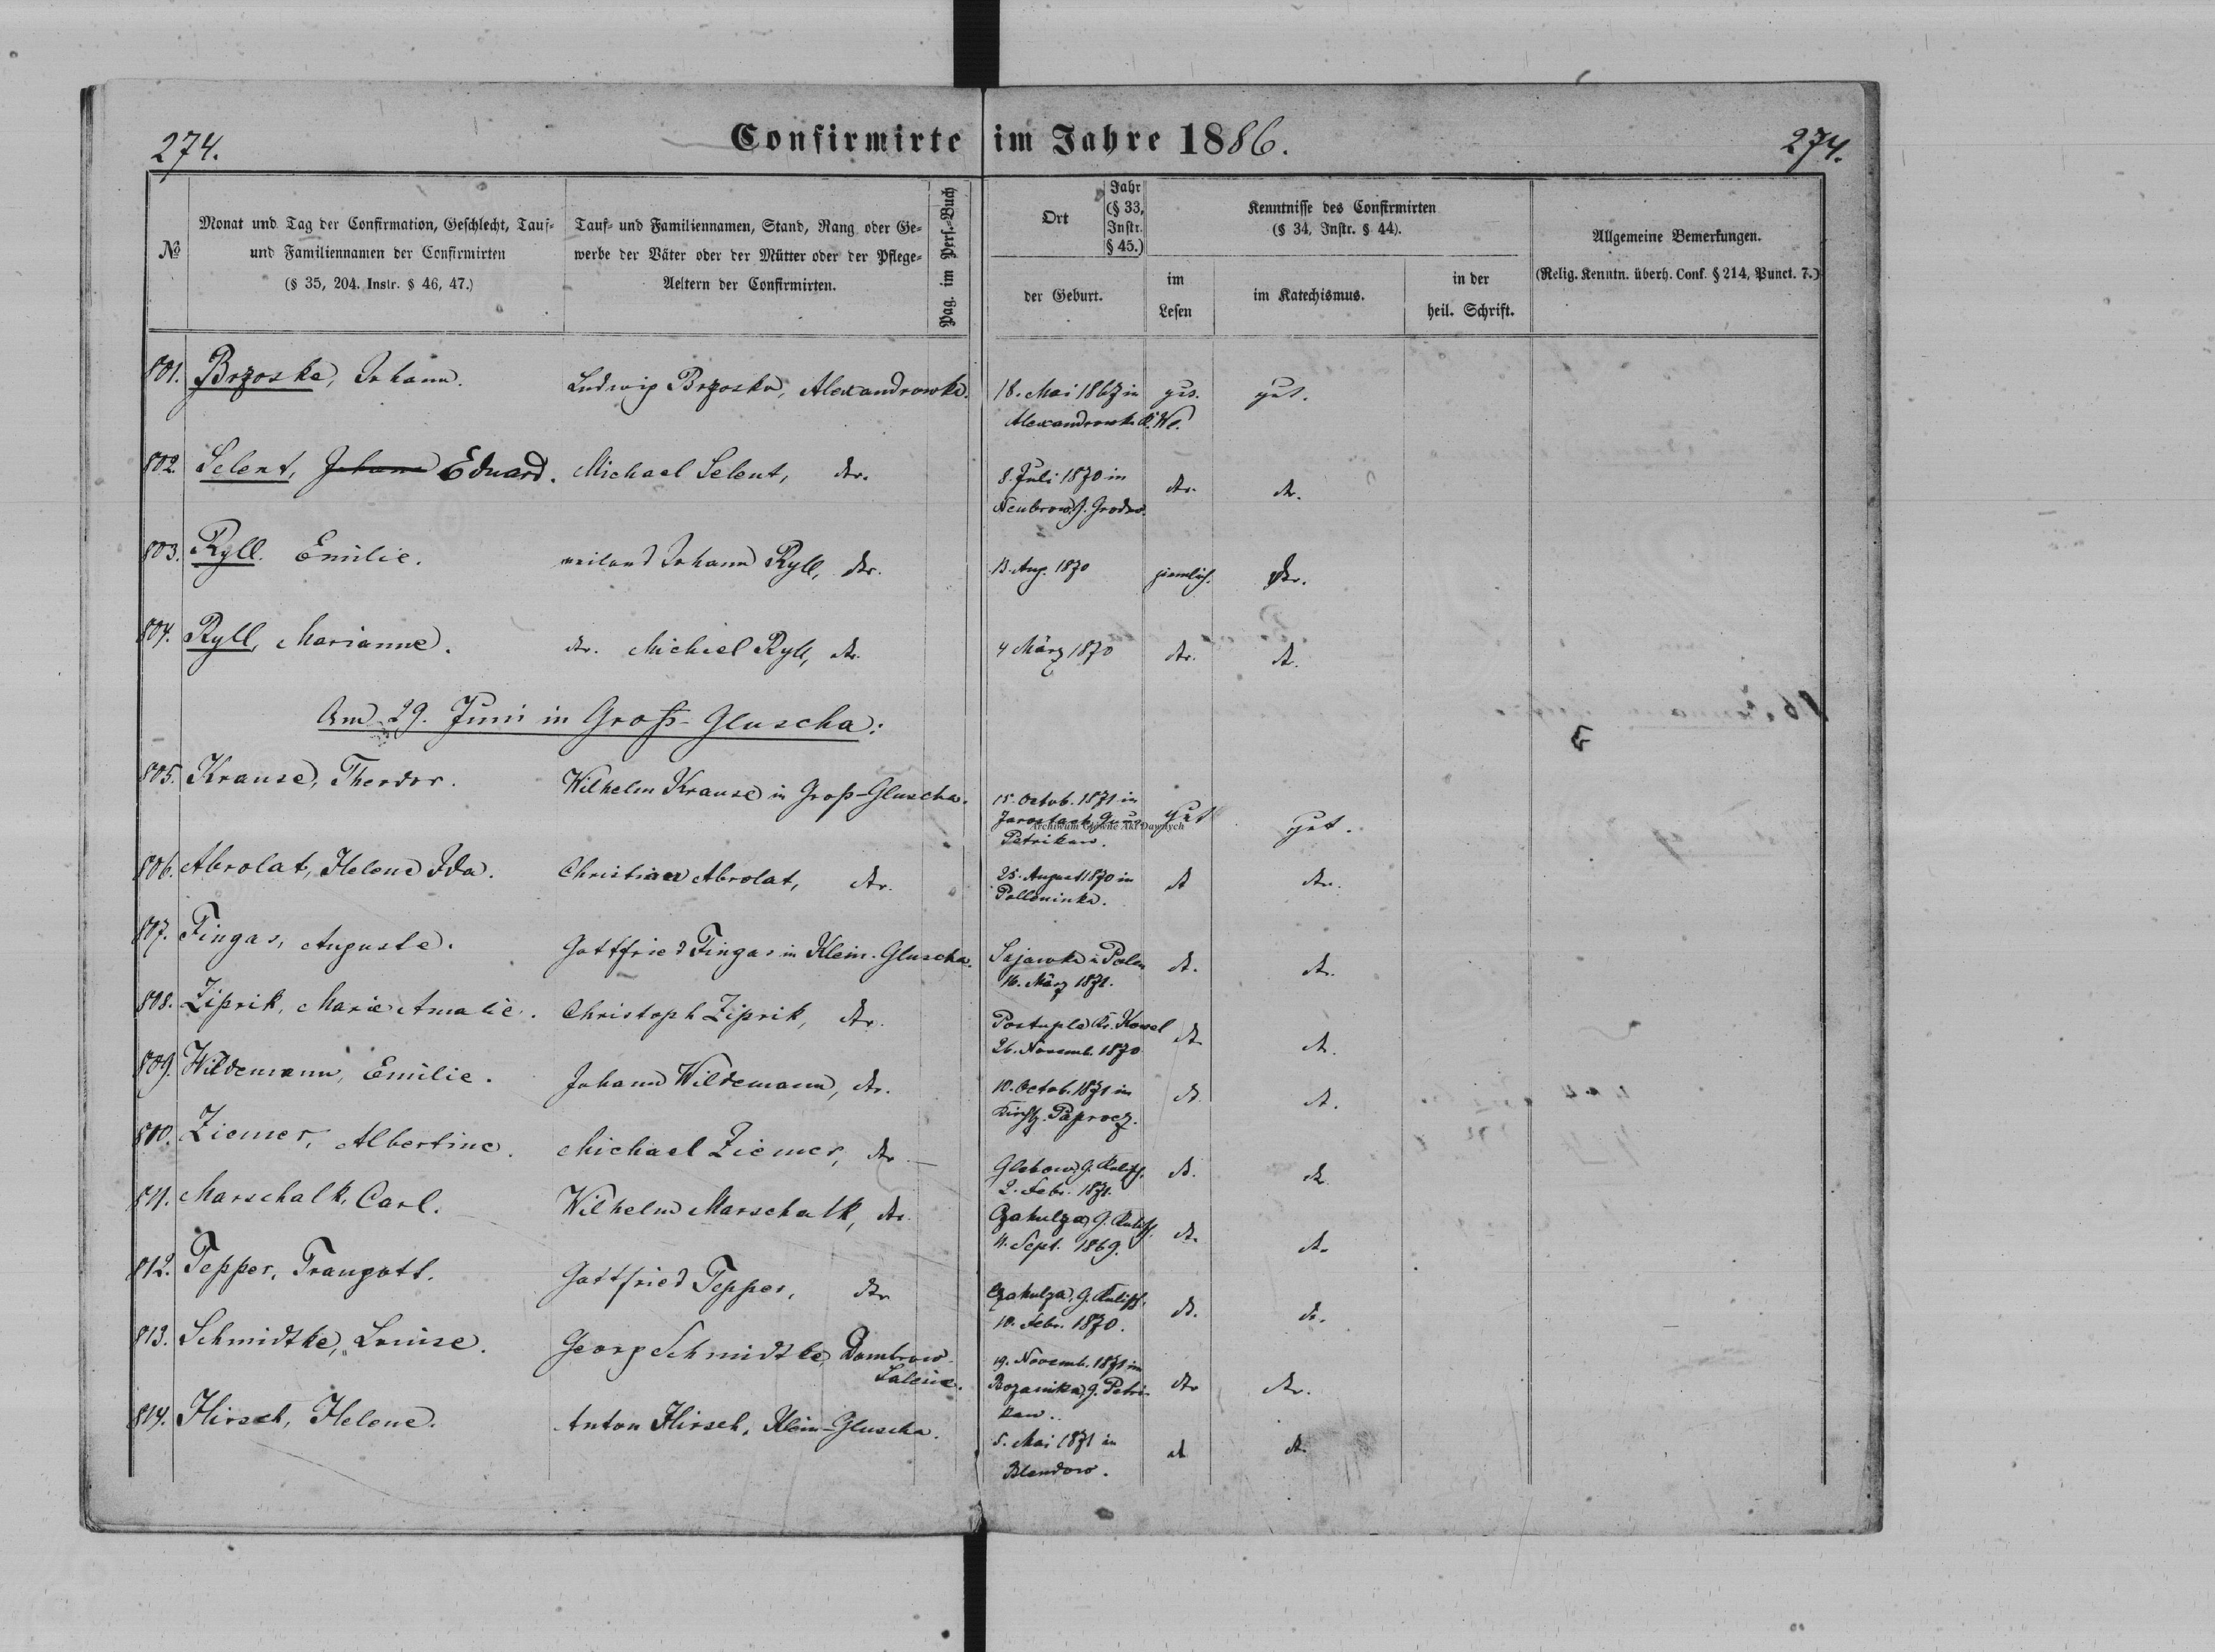 274.
Confirmirte im Jahre 1886.
274.
№
Monat und Tag der Confirmation, Geschlecht, Tauf-
und Familiennamen der Confirmirten
(§ 35, 204. Instr. § 46, 47.)
Tauf- und Familiennamen, Stand, Rang oder Ge-
werbe der Väter oder der Mütter oder der Pflege-
Aeltern der Confirmirten.
Pag. im Pers.-Buch
Ort
Jahr
(§ 33,
Instr.
§ 45.)
der Geburt.
Kenntnisse des Confirmirten
(§ 34, Instr. § 44).
im
Lesen
im Katechismus.
in der
heil. Schrift.
Allgemeine Bemerkungen.
(Relig. Kenntn. überh. Conf. § 214, Punct. 7.)
801. Brzoska, Johann. Ludwig Brzoska, Alexandrowka. 18. Mai 1867 in gut.
Alexandrowk.
802. Selent, Johann Eduard. Michael Selent, do. 8. Juli 1870 in do. do.
Neubrow. G. Grodno.
803. Ryll. Emilie. weiland Johann Ryll, do. 13. Aug. 1870 ziemlich. do.
804. Ryll, Marianne. do. Michael Ryll, do. 4 März 1870 do. do.
Am 29. Juni in Groß-Gluscha:
805. Krause, Theodor. Wilhelm Krause in Groß-Gluscha. 15. Octob. 1871 in gut gut.
Petrikau.
Archiwum Główne Akt Dawnych
806. Abrolat, Helene Ida. Christian Abrolat, do. 25. August 1870 in do do.
Polloninka.
807. Fingas, Auguste. Gottfried Fingas in Klein-Gluscha. Sajawka in Polen do. do.
16. März 1871.
808. Ziprik, Marie Amalie. Christoph Ziprik, do. Postuple Kr. Kowel do. do.
26. Novemb. 1870
809. Wildemann, Emilie. Johann Wildemann, do. 10. Octob. 1871 in do. do.
Paprocz.
810. Ziemer, Albertine. Michael Ziemer, do. Glebow, G. Kalisch. do. do.
2. Febr. 1871.
811. Marschalk, Carl. Wilhelm Marschalk, do. Czahulza, G. Kalisch. do. do.
11. Sept. 1869.
812. Tepper, Traugott. Gottfried Tepper, do. Czahulza, G. Kalisch. do. do.
10. Febr. 1870.
813. Schmidtke, Louise. Georg Schmidtke, Dombrow- 19. Novemb. 1871 in do. do.
Salesie. Rozanika, G. Petri-
kau.
814. Hirsch, Helene. Anton Hirsch, Klein-Gluscha. 5. Mai 1871 in do do.
Blendow.